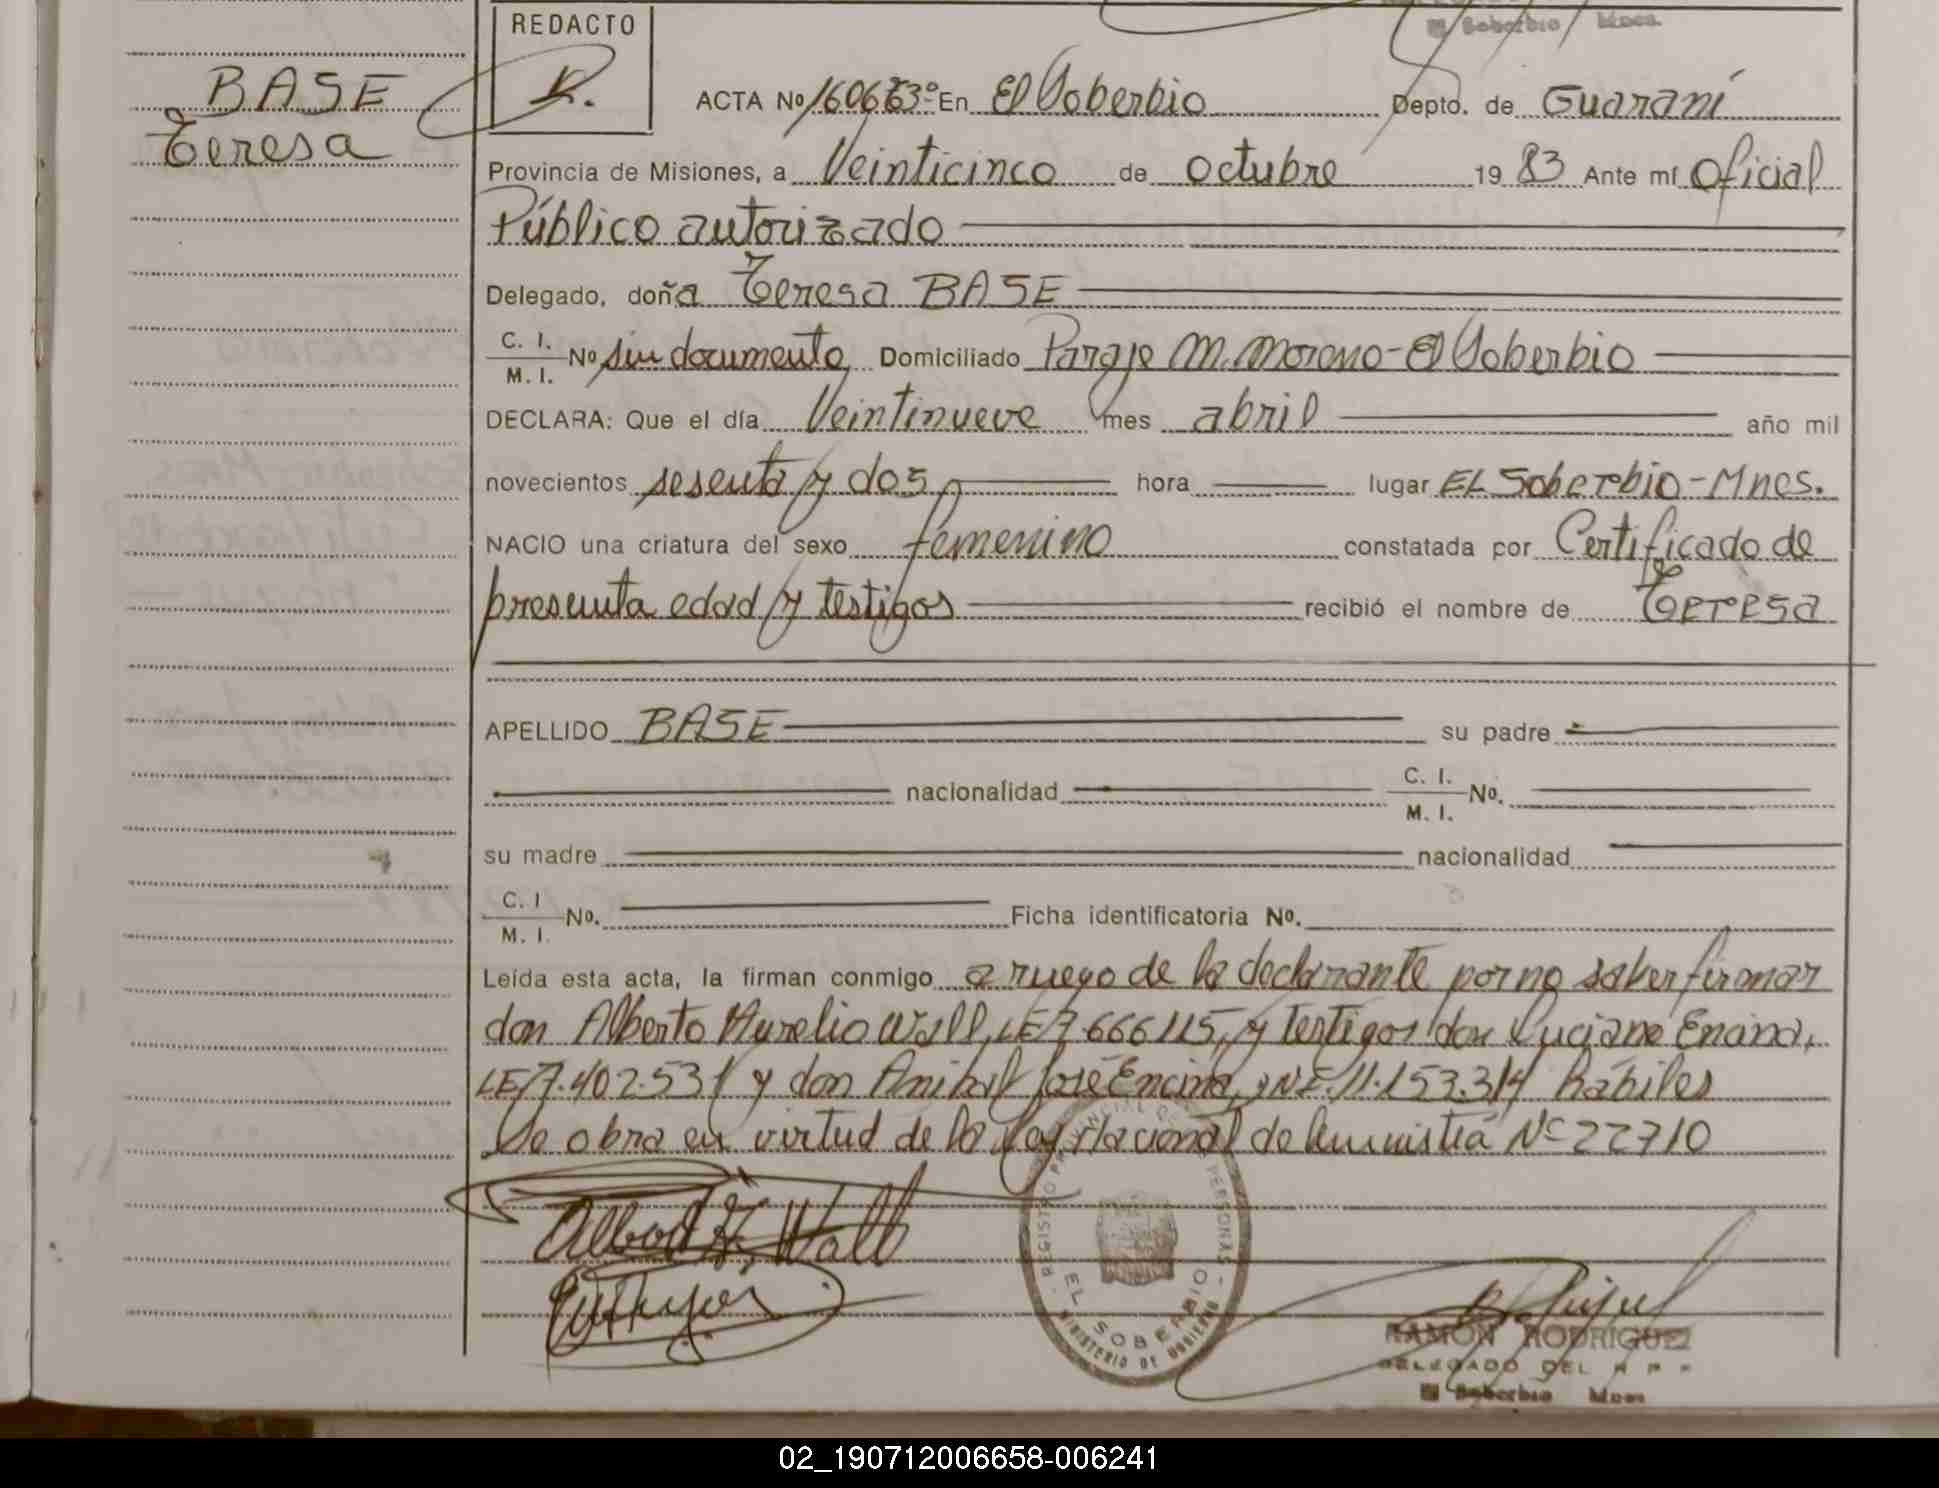 El Soberbio Mnes.
REDACTO
BASE
Teresa
ACTA Nº En El Soberbio Depto. de Guaraní
Provincia de Misiones, a Veinticinco de octubre 19 83 Ante mí Oficial
Público autorizado
Delegado, doña Teresa BASE
C. I. M. I. Nº sin documento, Domiciliado Paraje M. Moreno - El Soberbio
DECLARA: Que el día Veintinueve mes abril año mil
novecientos sesenta y dos hora lugar EL Soberbio - Mnes.
NACIO una criatura del sexo femenino constatada por Certificado de
presunta edad y testigos recibió el nombre de Teresa
APELLIDO BASE su padre
nacionalidad C. I. M. I. Nº.
su madre nacionalidad
C. I M. I. Nº. Ficha identificatoria Nº.
Leída esta acta, la firman conmigo a ruego de la declarante por no saber firmar
don Alberto Aurelio Wall, LE 7.666115, y testigos don Luciano Encina,
LE 7.402.531 y don Anibal José Encina, DNI. 11.153.314 hábiles
Se obra en virtud de la Ley Nacional de Amnistía Nº 22710
REGISTRO PROVINCIAL DE PERSONAS
EL SOBERBIO
MINISTERIO DE GOBIERNO
RAMON RODRIGUEZ
DELEGADO DEL R P P
El Soberbio Mnes
02_190712006658-006241